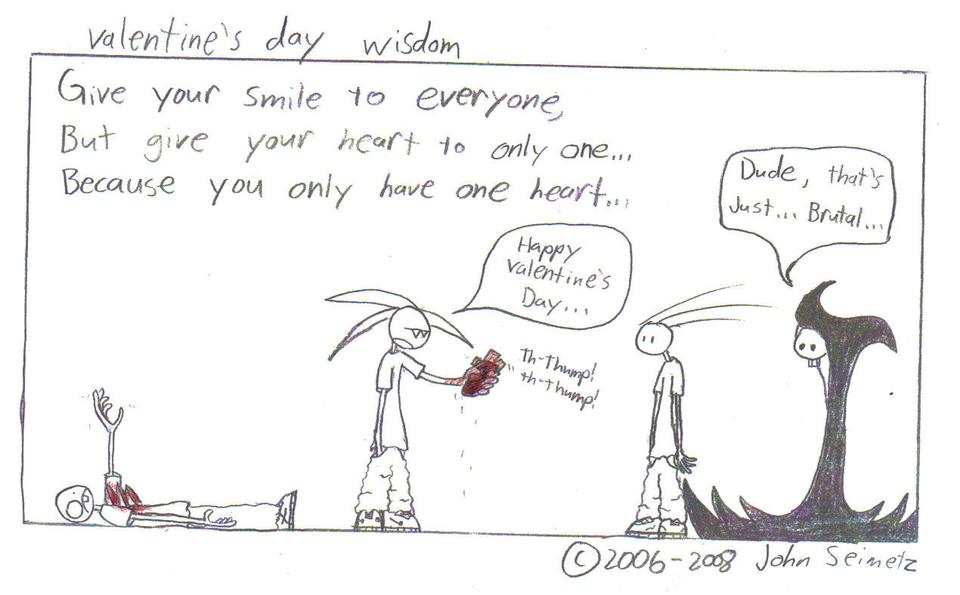 valentine's day wisdom
Give your smile to everyone,
But give your heart to only one...
Because you only have one heart...
Dude, that's
Just... Brutal...
Happy
Valentine's
Day...
Th-Thump!
th-thump!
©2006-2008 John Seimetz